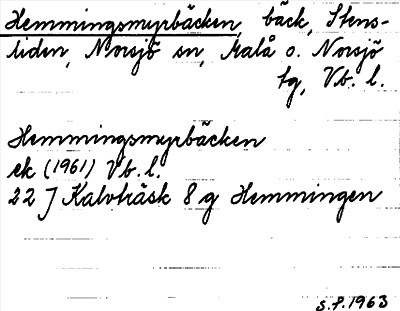 Hemmingsmyrbäcken, bäck, Stens-
liden, Norsjö sn, Malå o. Norsjö
tg, Vb. l.
Hemmingsmyrbäcken
ek (1961) Vb. l.
22 J Kalvträsk 8 g Hemmingen
S.P. 1963